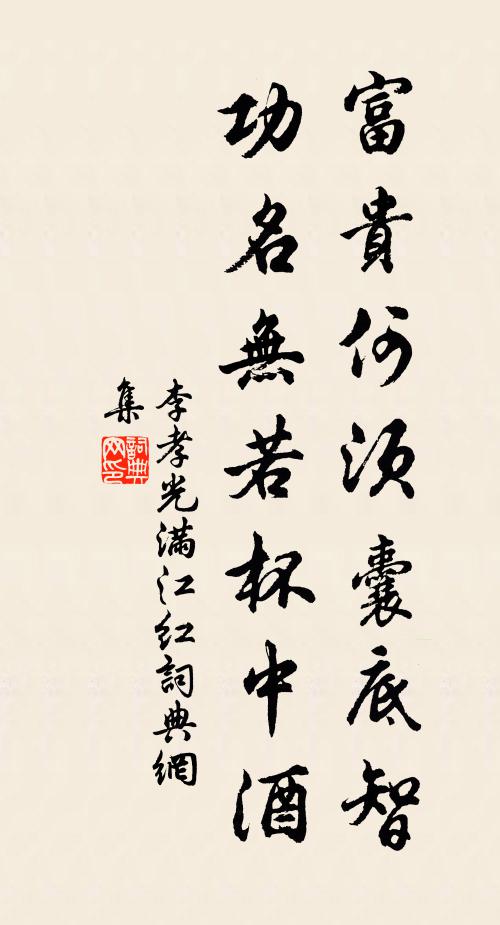 富貴何須囊底智
功名無若杯中酒
李孝光滿江紅詞典網
集
詞典網印